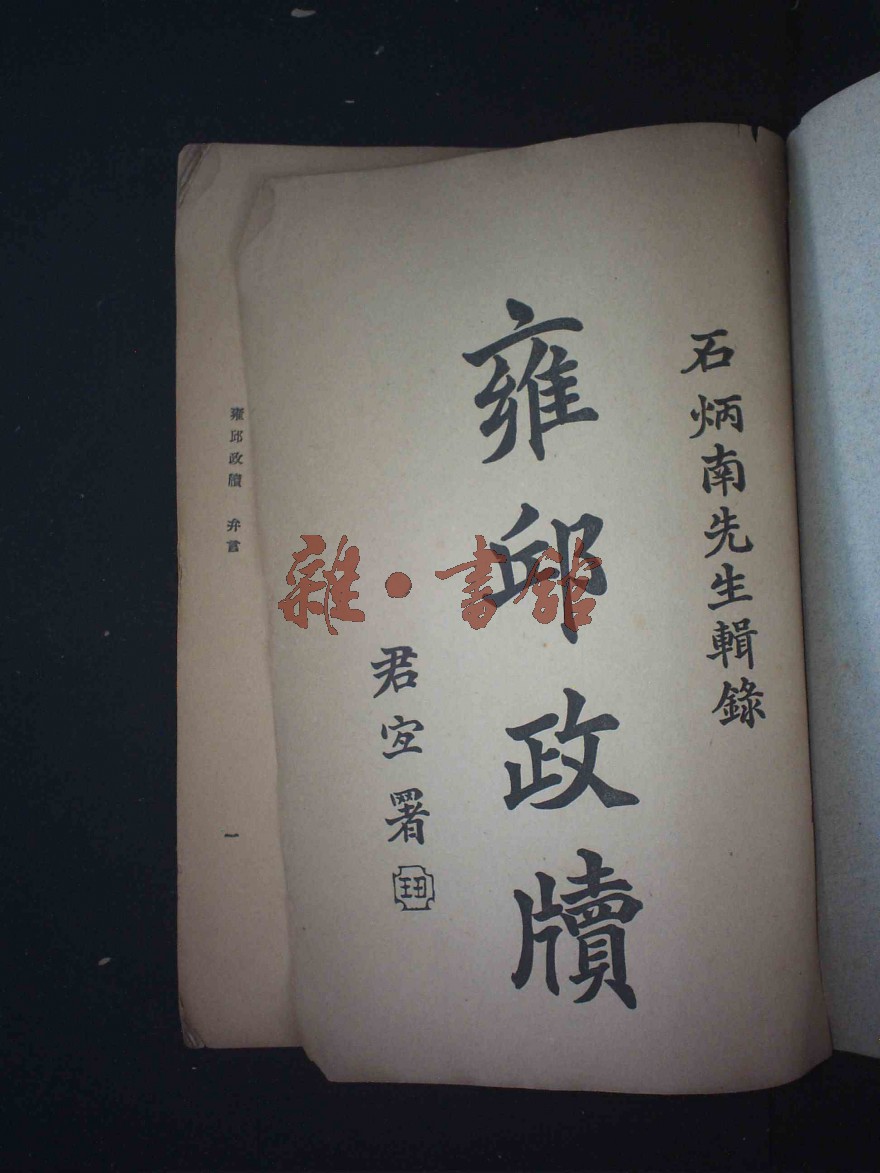 石炳南先生輯錄
雍邱政牘
君宜署
雜·書館
雍邱政牘 弁言
一